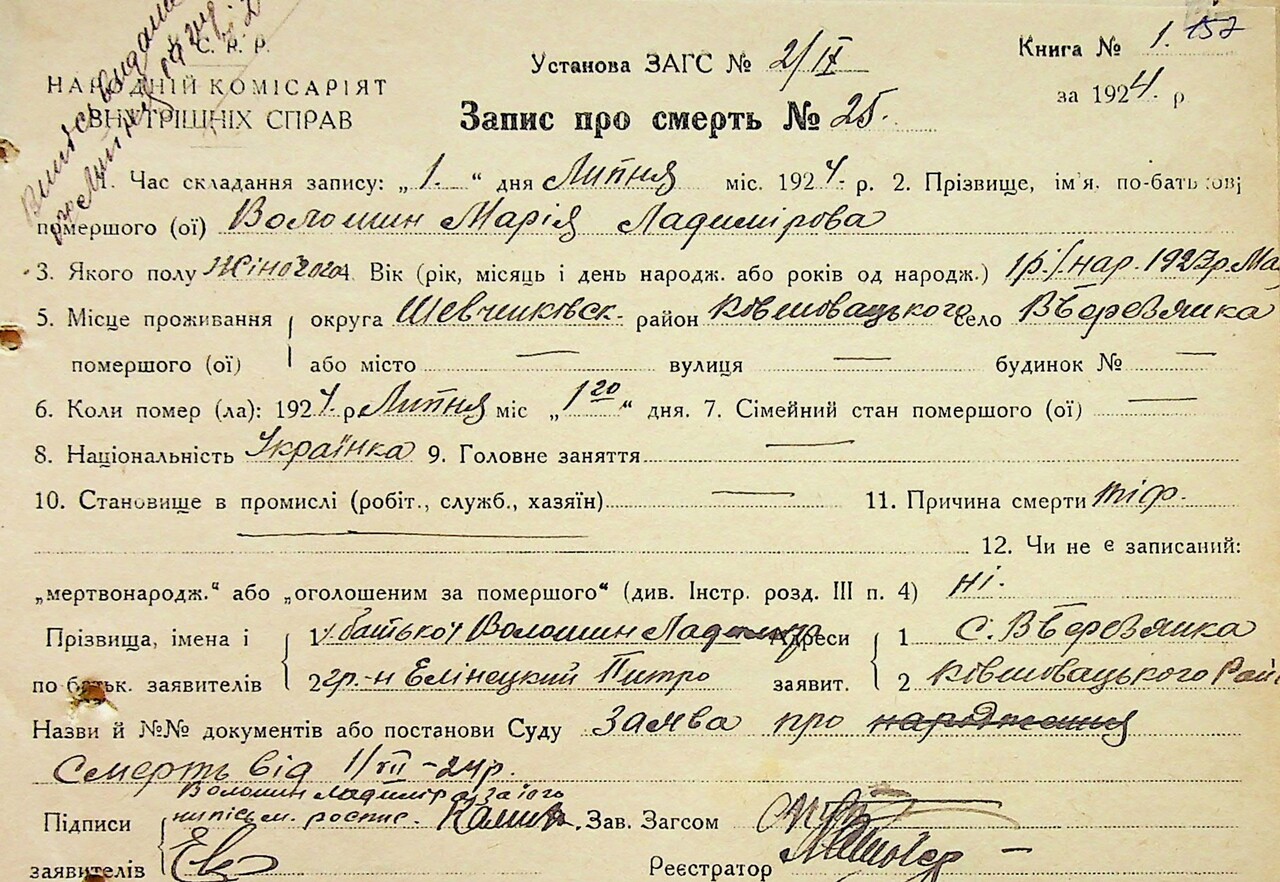 С. Р. Р.
НАРОДНІЙ КОМІСАРІЯТ
ВНУТРІШНІХ СПРАВ
Установа ЗАГС № 2/IX
Книга № 1. 157
за 1924. р
Запис про смерть № 25.
1. Час складання запису: „1.“ дня Липня міс. 1924. р. 2. Прізвище, ім'я, по-батькові
помершого (ої) Волошин Марія Ладимірова
3. Якого полу Жіночого 4. Вік (рік, місяць і день народж. або років од народж.) 1р./нар. 1923р. Ма
5. Місце проживання округа Шевченківськ. район Ківшовацького село Вберезянка
помершого (ої) або місто — вулиця — будинок № —
6. Коли помер (ла): 1924. р Липня міс „1го“ дня. 7. Сімейний стан помершого (ої) —
8. Національність Українка 9. Головне заняття —
10. Становище в промислі (робіт., служб., хазяїн) — 11. Причина смерти тіф.
12. Чи не є записаний:
„мертвонародж.“ або „оголошеним за помершого“ (див. Інстр. розд. III п. 4) ні.
Прізвища, імена і 1 /батько/ Волошин Ладимір Адреси 1 С. Вберезянка
по батьк. заявителів 2 гр-н Елінецкий Питро заявит. 2 Ківшовацького Рай
Назви й №№ документів або постанови Суду Заява про народження
Смерть від 1/VII-24р.
Волошин Ладимір а за його
Підписи нипісьм. роспис. Зав. Загсом
заявителів Реєстратор